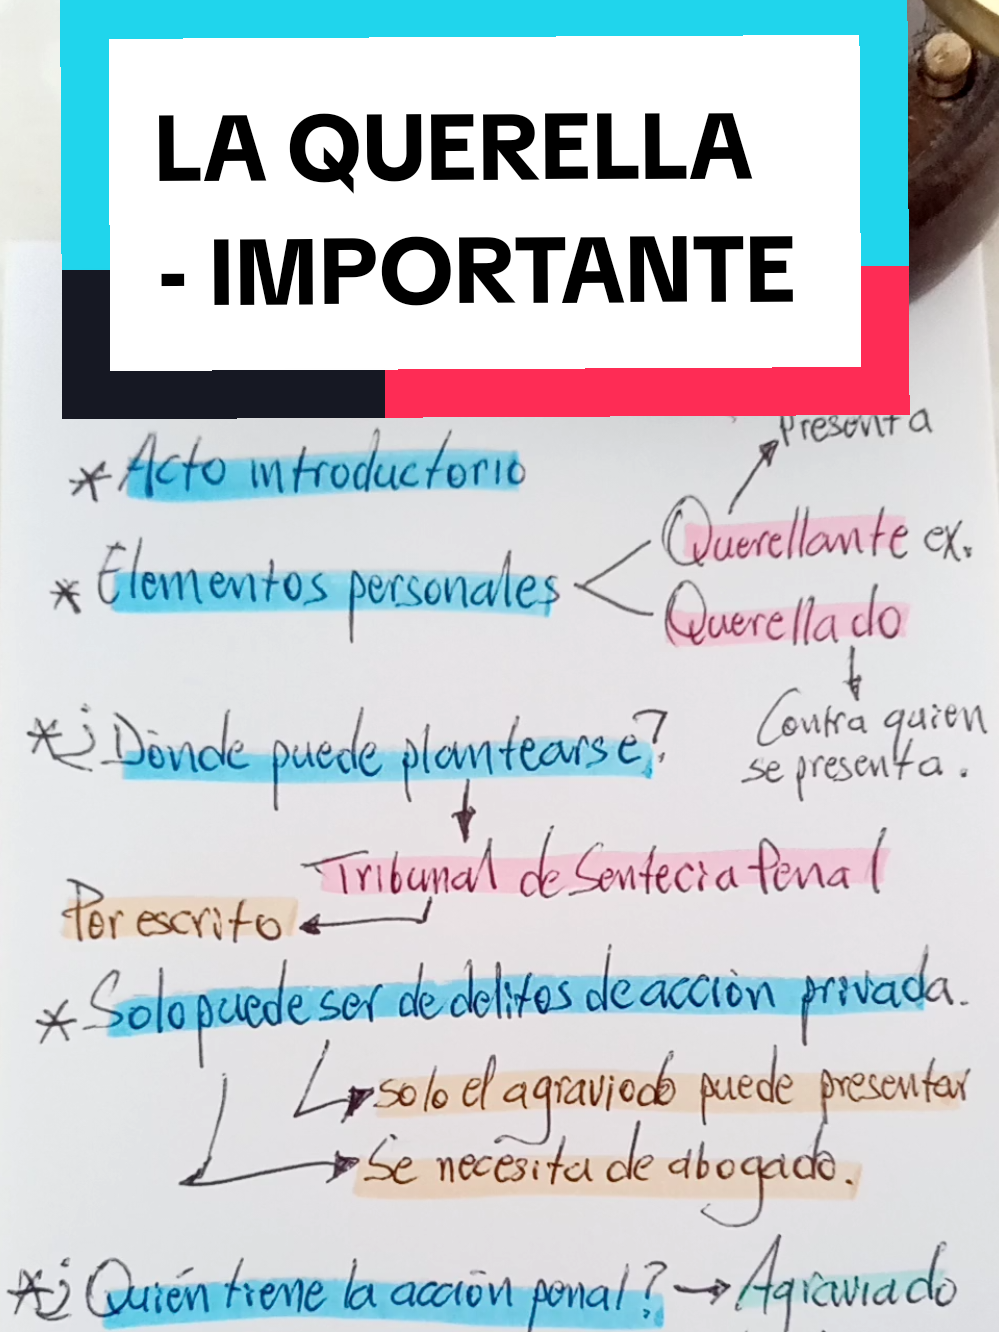 LA QUERELLA
- IMPORTANTE
Presenta
* Acto introductorio
Querellante ex.
* Elementos personales
Querellado
Contra quien
se presenta.
*¿Dónde puede plantearse?
Tribunal de Sentecia Penal
Por escrito
* Solo puede ser de delitos de acción privada.
solo el agraviado puede presentar
Se necesita de abogado.
*¿Quién tiene la acción penal? → Agraviado